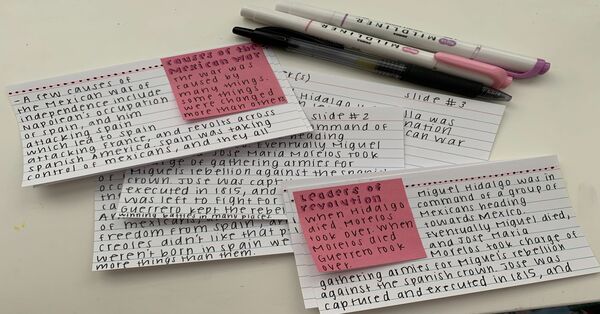 MILDLINER
MILDLINER
causes of the
Mexican War
the war was
caused by
many things.
some things
were changed
more than others
- A few causes of
the Mexican war of
Independence include
Napolean's occupation
of spain, and him
attacking spain
which led to spain
attacking France, and revolts across
spanish America. spain was taking
control of mexicans, and they all
er(s)
Hidalgo
slide #3
lla was
nation
can war
slide #2
command of
eading
Eventually Miguel
Jose Maria Morelos took
ge of gathering armies for
Miguels rebellion against the spanish
crown. Jose was capt
executed in 1815, and
was to fight for
Guerrero kept the rebel
winning battles in many places
of mexicans,
freedom from spain, an
creoles didn't like that p
weren't born in spain we
more things than them.
Leaders of
revolution
when Hidalgo
died, Morelos
took over. when
Morelos died
Guerrero took
over.
Miguel Hidalgo was in
command of a group of
Mexicans heading
towards Mexico.
Eventually Miguel died,
and Jose Maria
Morelos took charge of
gathering armies for Miguels rebellion
against the spanish crown. Jose was
captured and executed in 1815, and